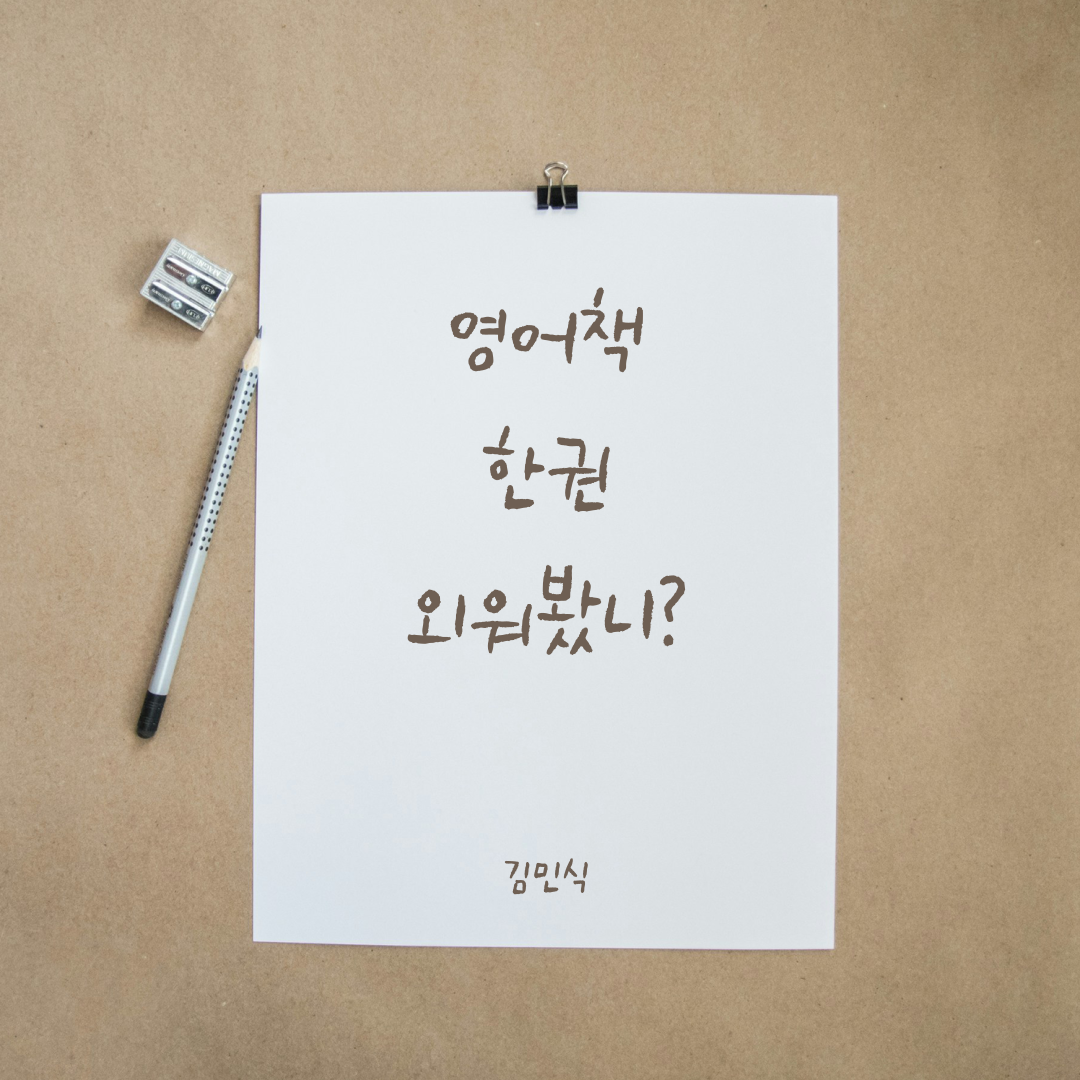 영어책
한권
외워봤니?
김민식